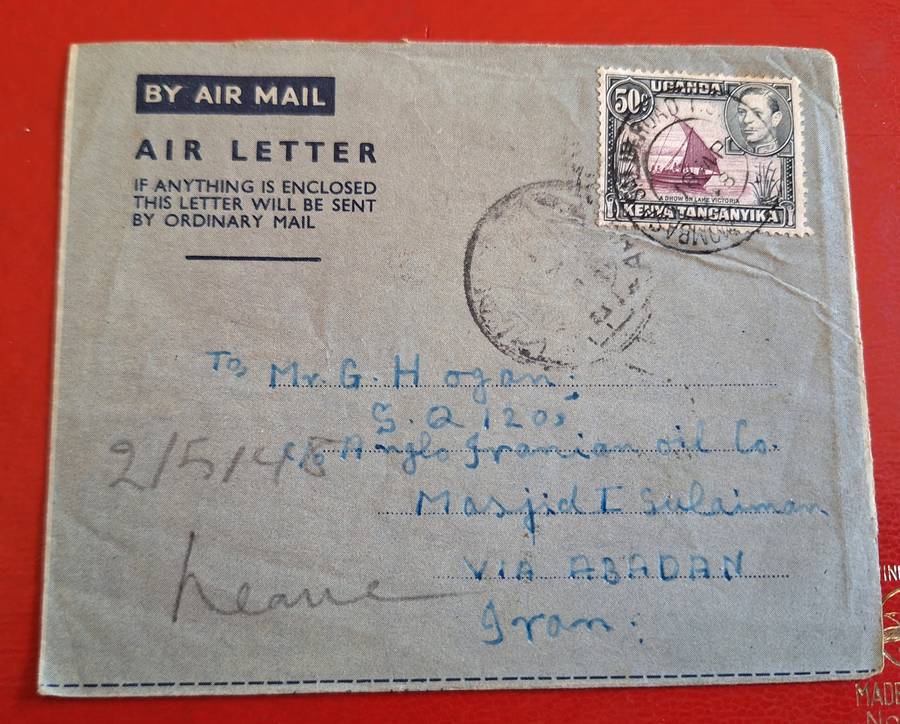 BY AIR MAIL
AIR LETTER
IF ANYTHING IS ENCLOSED
THIS LETTER WILL BE SENT
BY ORDINARY MAIL
UGANDA
50c
A DHOW ON LAKE VICTORIA
KENYA TANGANYIKA
To, Mr. G. Hogan:
S.Q 1205
c/o Anglo Iranian oil Co.
2/5/48
Masjid I Sulaiman
VIA ABADAN
Iran:
MADE